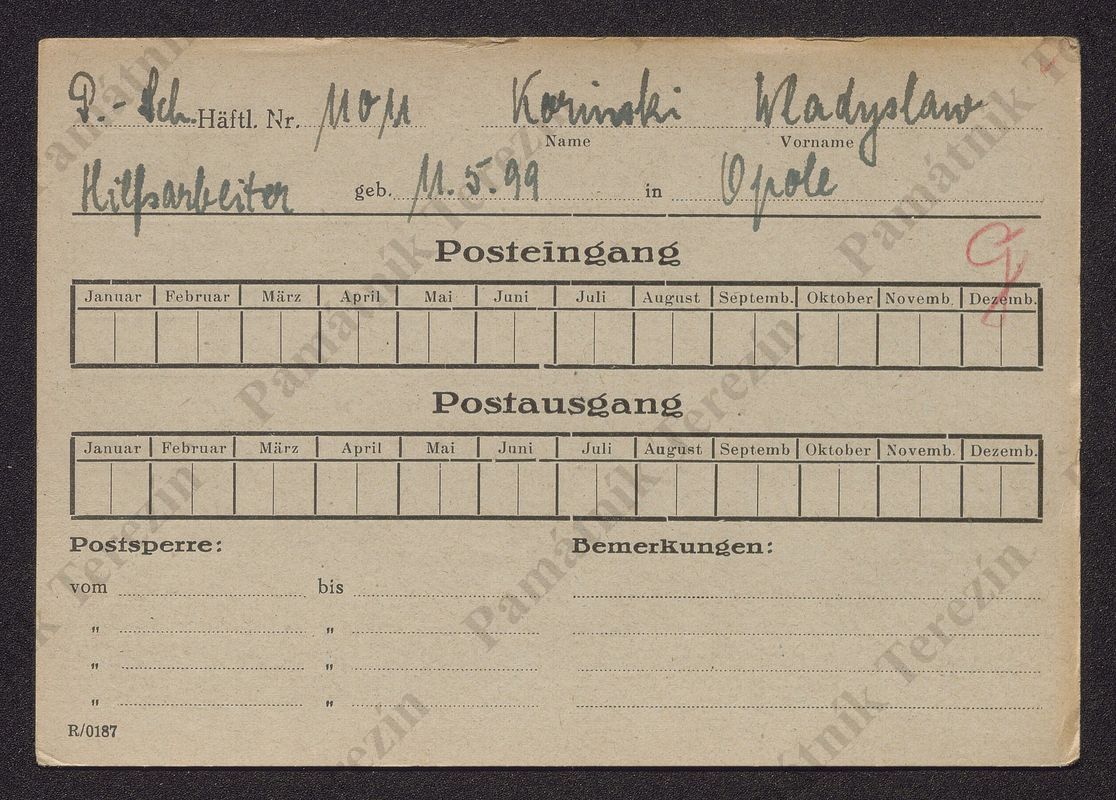 P.- Sch. Häftl. Nr. 11011 Korinski Wladyslaw
Name Vorname
Hilfsarbeiter geb. 11.5.99 in Opole
Posteingang
Januar Februar März April Mai Juni Juli August Septemb. Oktober Novemb. Dezemb.
Postausgang
Januar Februar März April Mai Juni Juli August Septemb Oktober Novemb. Dezemb.
Postsperre: Bemerkungen:
vom bis
" "
" "
" "
R/0187
Památník Terezín